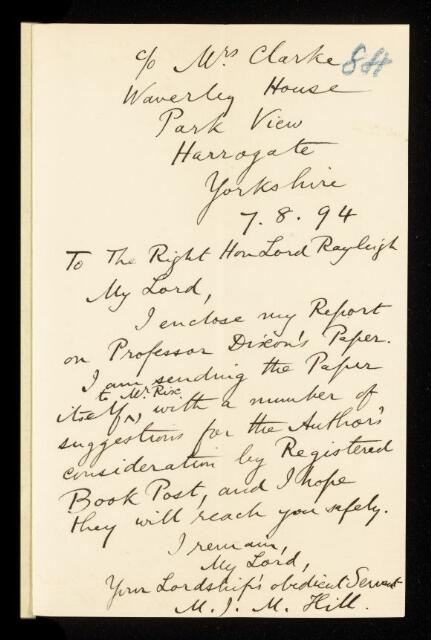 c/o Mrs Clarke 84
Waverley House
Park View
Harrogate
Yorkshire
7.8.94
To The Right Hon Lord Rayleigh
My Lord,
I enclose my Report
on Professor Dixon's Paper.
I am sending the Paper
to Mr Rix
itself, with a number of
suggestions for the Author's
consideration by Registered
Book Post, and I hope
they will reach you safely.
I remain,
My Lord,
Your Lordship's obedient Servant
M. J. M. Hill.